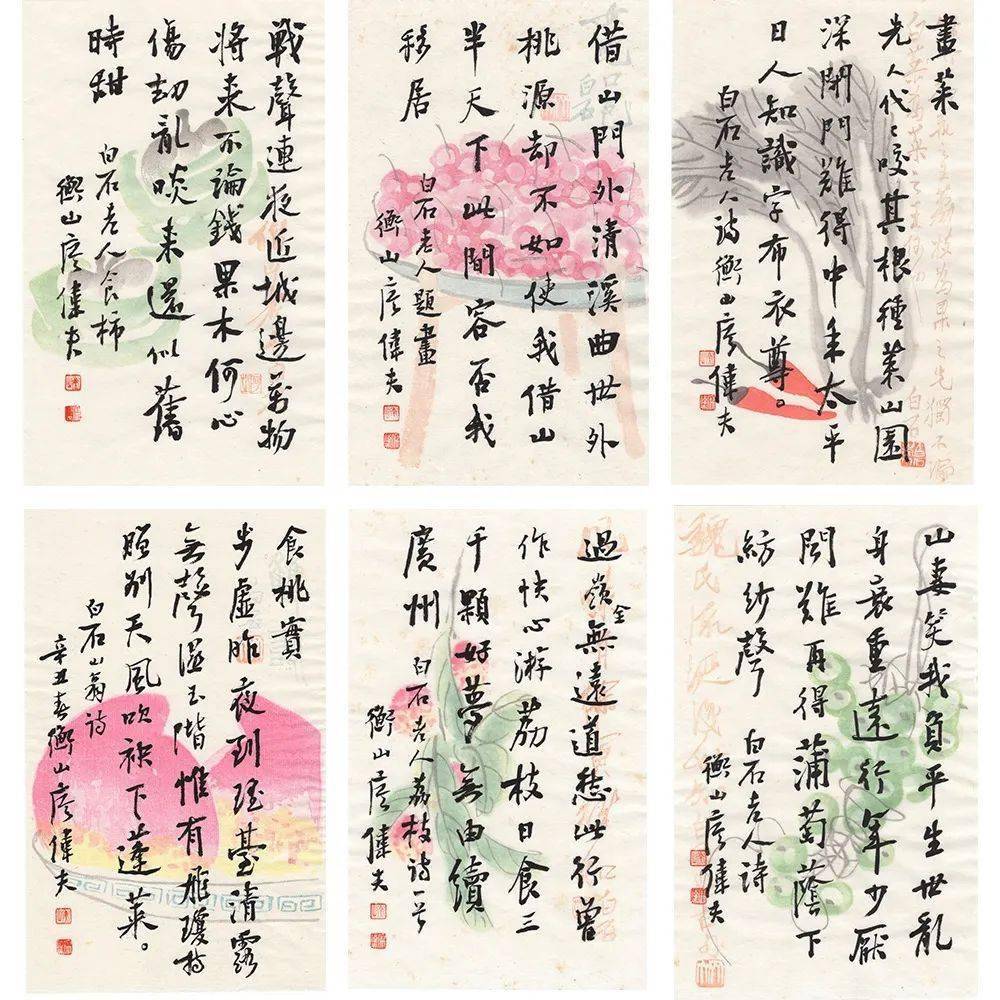 戰聲連夜近城邊萬物
將来不論錢果木何心
傷劫亂啖来還似舊
時甜
白石老人食柿
衡山廖偉夫
借山門外清溪曲世外
桃源却不如使我借山
半天下此間容否我
移居
白石老人題畫
衡山廖偉夫
畫菜
先人代〻咬其根種菜山園
深閉門難得中年太平
日人知識字布衣尊。
白石老人詩衡山廖偉夫
食桃實
步虛昨夜到瑶臺清露
無聲溼玉階惟有飛瓊特
賜別天風吹袂下蓬萊。
白石山翁詩
辛丑春衡山廖偉夫
過嶺全無遠道愁此行曾
作快心游荔枝日食三
千顆好夢無由續
廣州
白石老人荔枝詩一首
衡山廖偉夫
山妻笑我負平生世亂
身衰重遠行年少厭
聞難再得蒲萄蔭下
紡紗聲
白石老人詩
衡山廖偉夫